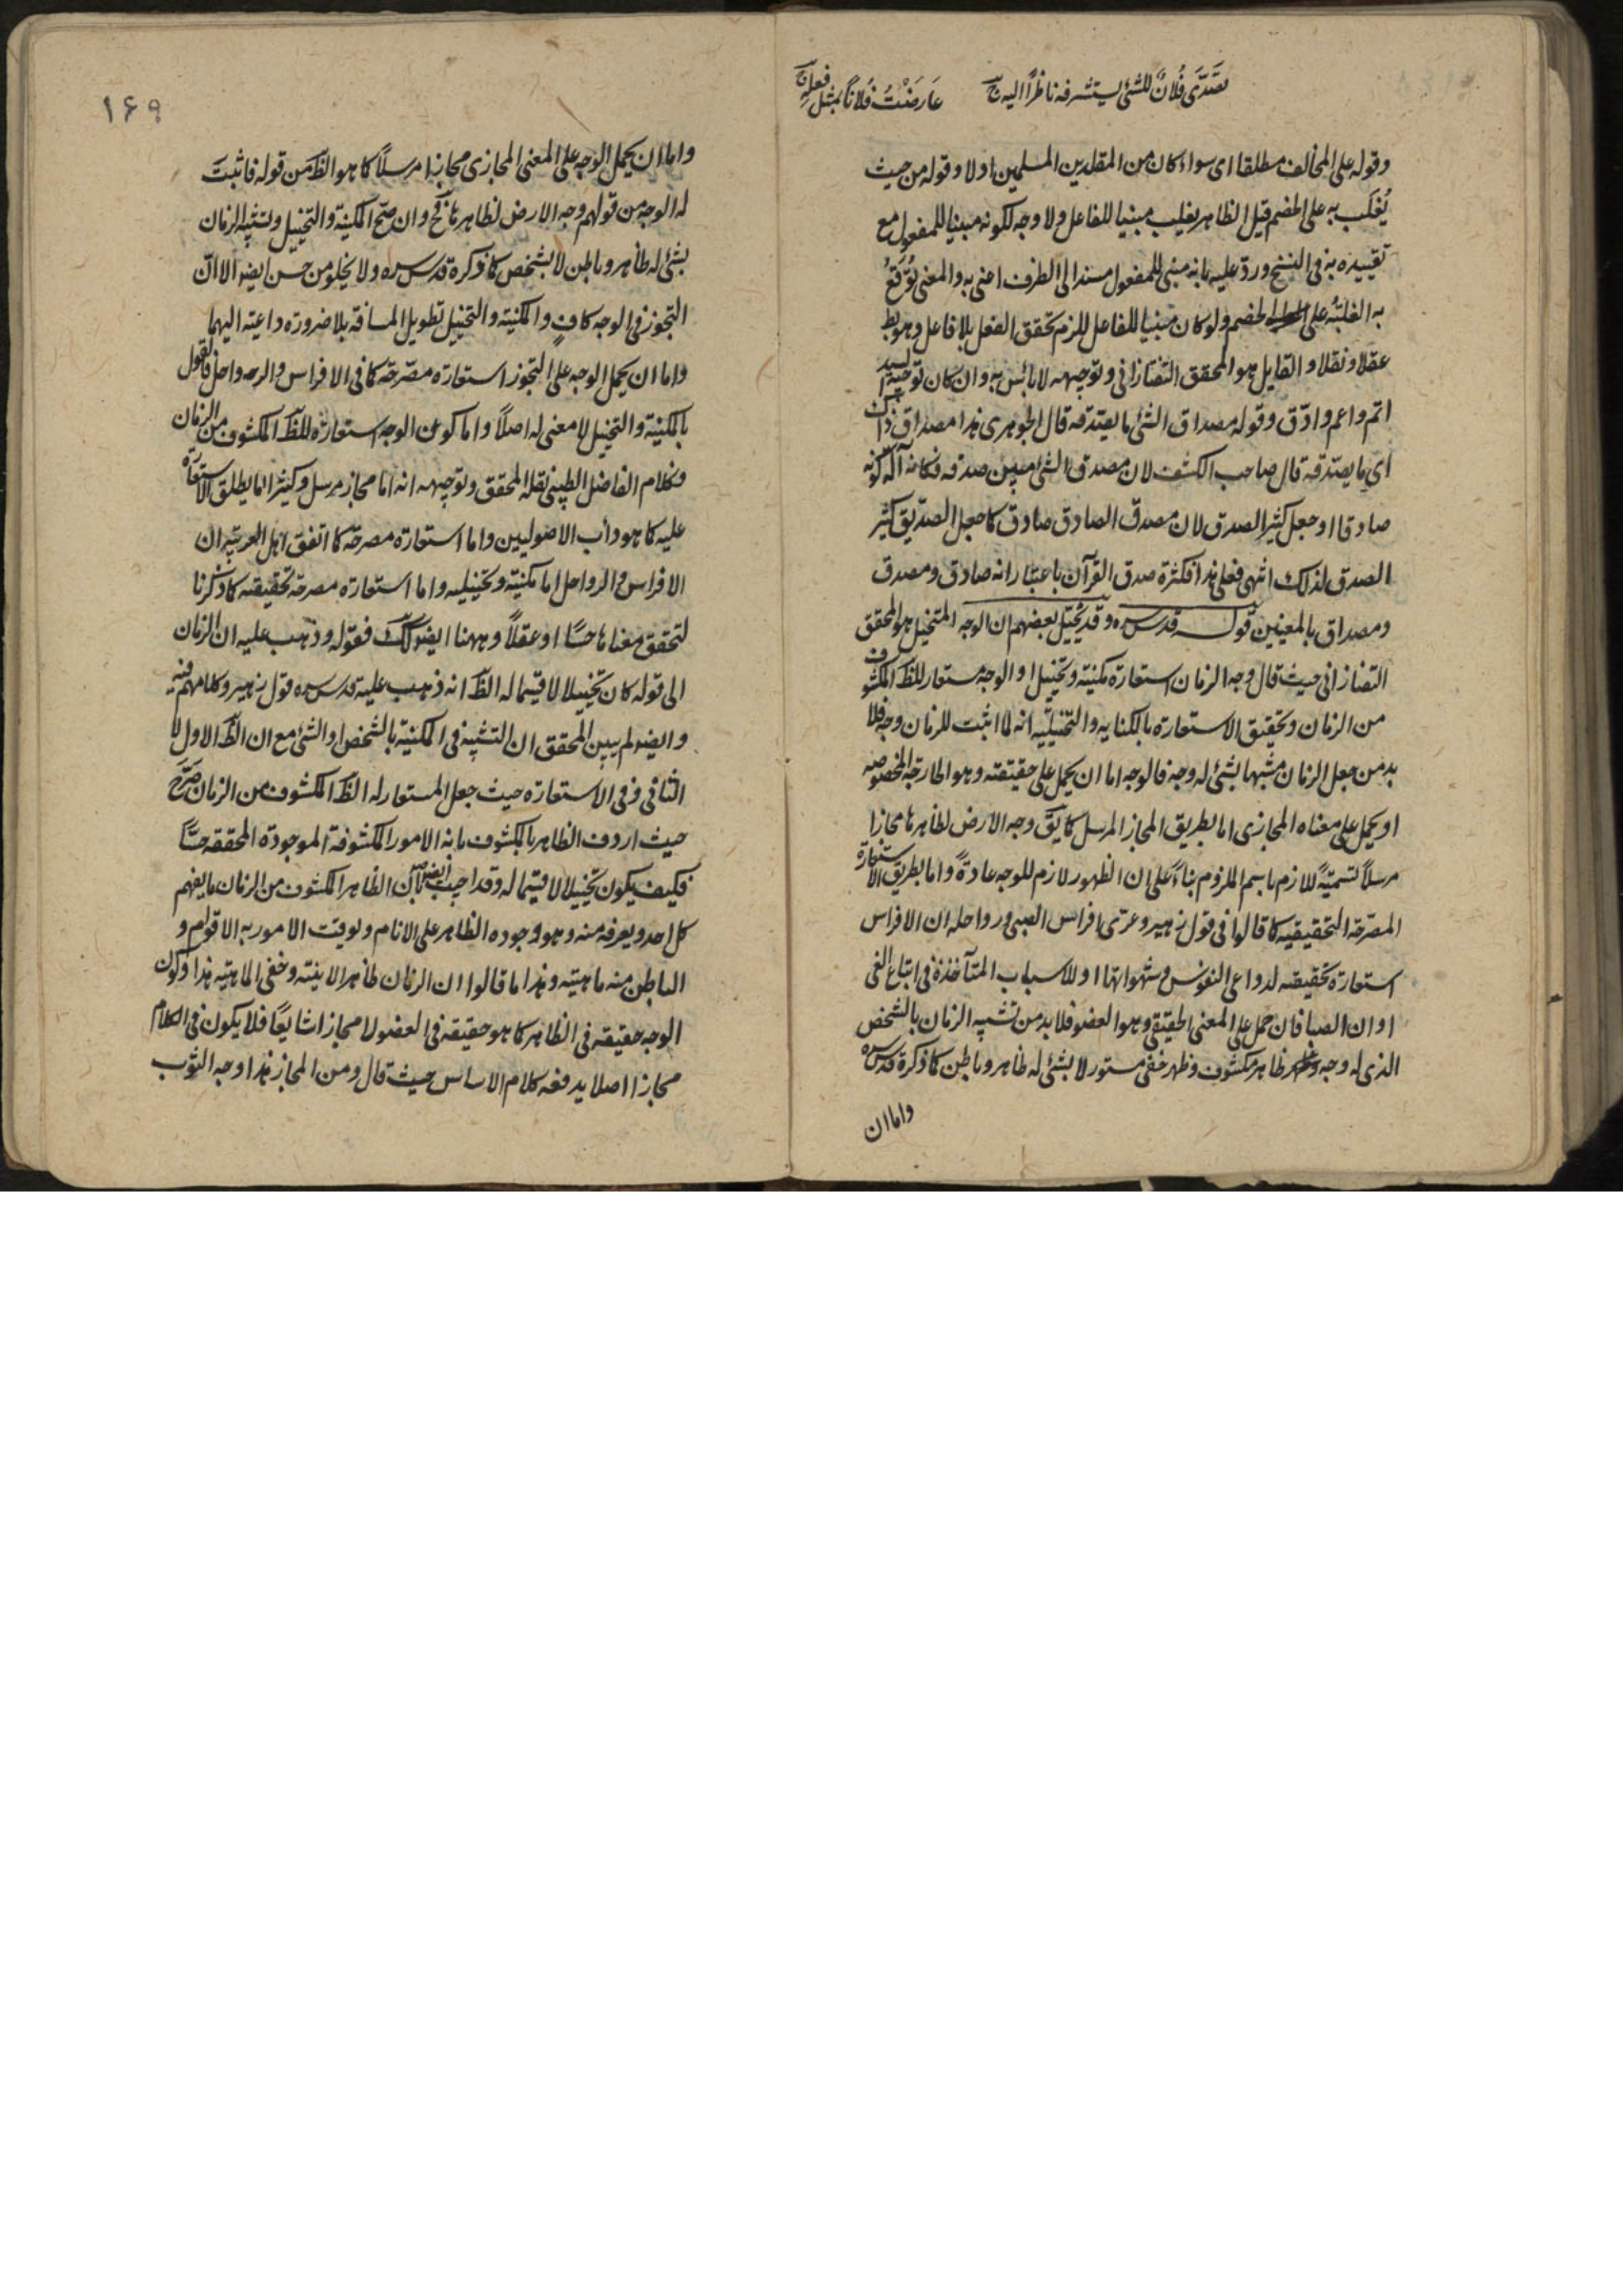 تَصَدَّى فُلَانٌ للشئ يستشرفه ناظرًا اليه
عَارَضْتُ فُلانًا بمثل فعله
وقوله على المخالف مطلقا اى سواء كان من المقلدين المسلمين اولا وقوله من حيث
يُغْلَب به على الخصم قيل الظاهر يغلب مبنيا للفاعل ولا وجه لكونه مبنيا للمفعول مع
تقييده به فى النسخ وردّ عليه بانه مبنى للمفعول مسندا الى الظرف اعنى به والمعنى يُوقَعُ
به الغلبة على الخصم ولو كان مبنيا للفاعل للزم تحقق الفعل بلا فاعل وهو بط
عقلا ونقلا والقايل هو المحقق التفتازانى وتوجيهه لا بأس به وان كان توجيه السيد
اتم واعم وادّق وقوله مصداق الشئ ما يصدقه قال الجوهرى هذا مصداق ذاك
اي ما يصدقه قال صاحب الكشف لان مصدق الشئ مبين صدقه فكانه آلة كونه
صادقا او جعل كثير الصدق لان مصدق الصادق صادق كما جعل الصديق كثير
الصدق لذلك انتهى فعلى هذا فكثرة صدق القرآن باعتبار انه صادق ومصدق
ومصداق بالمعنيين قوله قدس سره وقد يُخَيَّل بعضهم ان الوجه المتخيل هو المحقق
التفتازانى حيث قال وجه الزمان استعارة مكنية وتخييل او الوجه مستعار للظ المكشوف
من الزمان وتحقيق الاستعارة بالكنايه والتخييليه انه لما اثبت للزمان وجه فلا
بد من جعل الزمان مشبها بشئ له وجه فالوجه اما ان يحمل على حقيقته وهو الجارحة المخصوصه
او يحمل على معناه المجازى اما بطريق المجاز المرسل كما يق وجه الارض لظاهرها مجازا
مرسلًا لتسميةً للازم باسم الملزوم بناءً على ان الظهور لازم للوجه عادةً واما بطريق الاستعارة
المصرحة التحقيقيه كما قالوا فى قول زهير وعرى افراس الصبى ورواحله ان الافراس
استعارة تحقيقيه لدواعى النفوس وشهواتها او للاسباب المتآخذة فى اتباع الغى
او ان الصبا فان حمل على المعنى الحقيقى وهو العضو فلا بد من تشبيه الزمان بالشخص
الذى له وجه ظاهر مكشوف وظهر خفى مستور لا بشئ له ظاهر وباطن كما ذكره قدس سره
واما ان
١۶٩
واما ان يحمل الوجه على المعنى المجازى مجازا مرسلًا كما هو الظ من قوله فاثبتَ
له الوجه من قولهم وجه الارض لظاهرها فح وان صح المكنية والتخييل وتشبيه الزمان
بشئ له ظاهر وباطن لا بشخص كما ذكره قدس سره ولا يخلو من حسن ايضا الا انّ
التجوز فى الوجه كافٍ والمكنية والتخييل تطويل المسافة بلا ضرورة داعية اليهما
واما ان يحمل الوجه على التجوز استعارة مصرّحة كما فى الافراس والرواحل فالقول
بالمكنية والتخييل لا معنى له اصلًا واما كون الوجه استعارة للظ المكشوف من الزمان
وكلام الفاضل الطيبى نقله المحقق وتوجيهه انه اما مجاز مرسل وكثيرا ما يطلق الاستعارة
عليه كما هو دأب الاصوليين واما استعارة مصرحة كما اتفق اهل العربية ان
الافراس والرواحل اما مكنية وتخييليه واما استعارة مصرحة تحقيقيه كما ذكرنا
لتحقق معناها حسًا او عقلًا وههنا ايضا كك فقوله وذهب عليه ان الزمان
الى قوله كان تخييلا لا قسيما له الظ انه ذهب عليه قدس سره قول زهير وكلامهم فيه
وايضا لم يبين المحقق ان التشبيه فى المكنية بالشخص او الشئ مع ان الظ الاول لا
الثانى وفى الاستعارة حيث جعل المستعار له الظ المكشوف من الزمان صَرَّحَ
حيث اردف الظاهر بالمكشوف بانه الامور المكشوفة الموجودة المحققه حسًّا
فكيف يكون تخييلا لا قسيما له وقد اجيب ايضا بان الظاهر المكشوف من الزمان ما يفهم
كل احد ويعرفه منه وهو وجوده الظاهر على الانام وتوقيت الامور به الاقوام و
الباطن منه ماهيته وهذا ما قالوا ان الزمان ظاهر الانية وخفى الماهية هذا وكون
الوجه حقيقة فى الظاهر كما هو حقيقة فى العضو لا مجازا شايعًا فلا يكون فى الكلام
مجازا اصلا يدفعه كلام الاساس حيث قال ومن المجاز هذا وجه الثوب